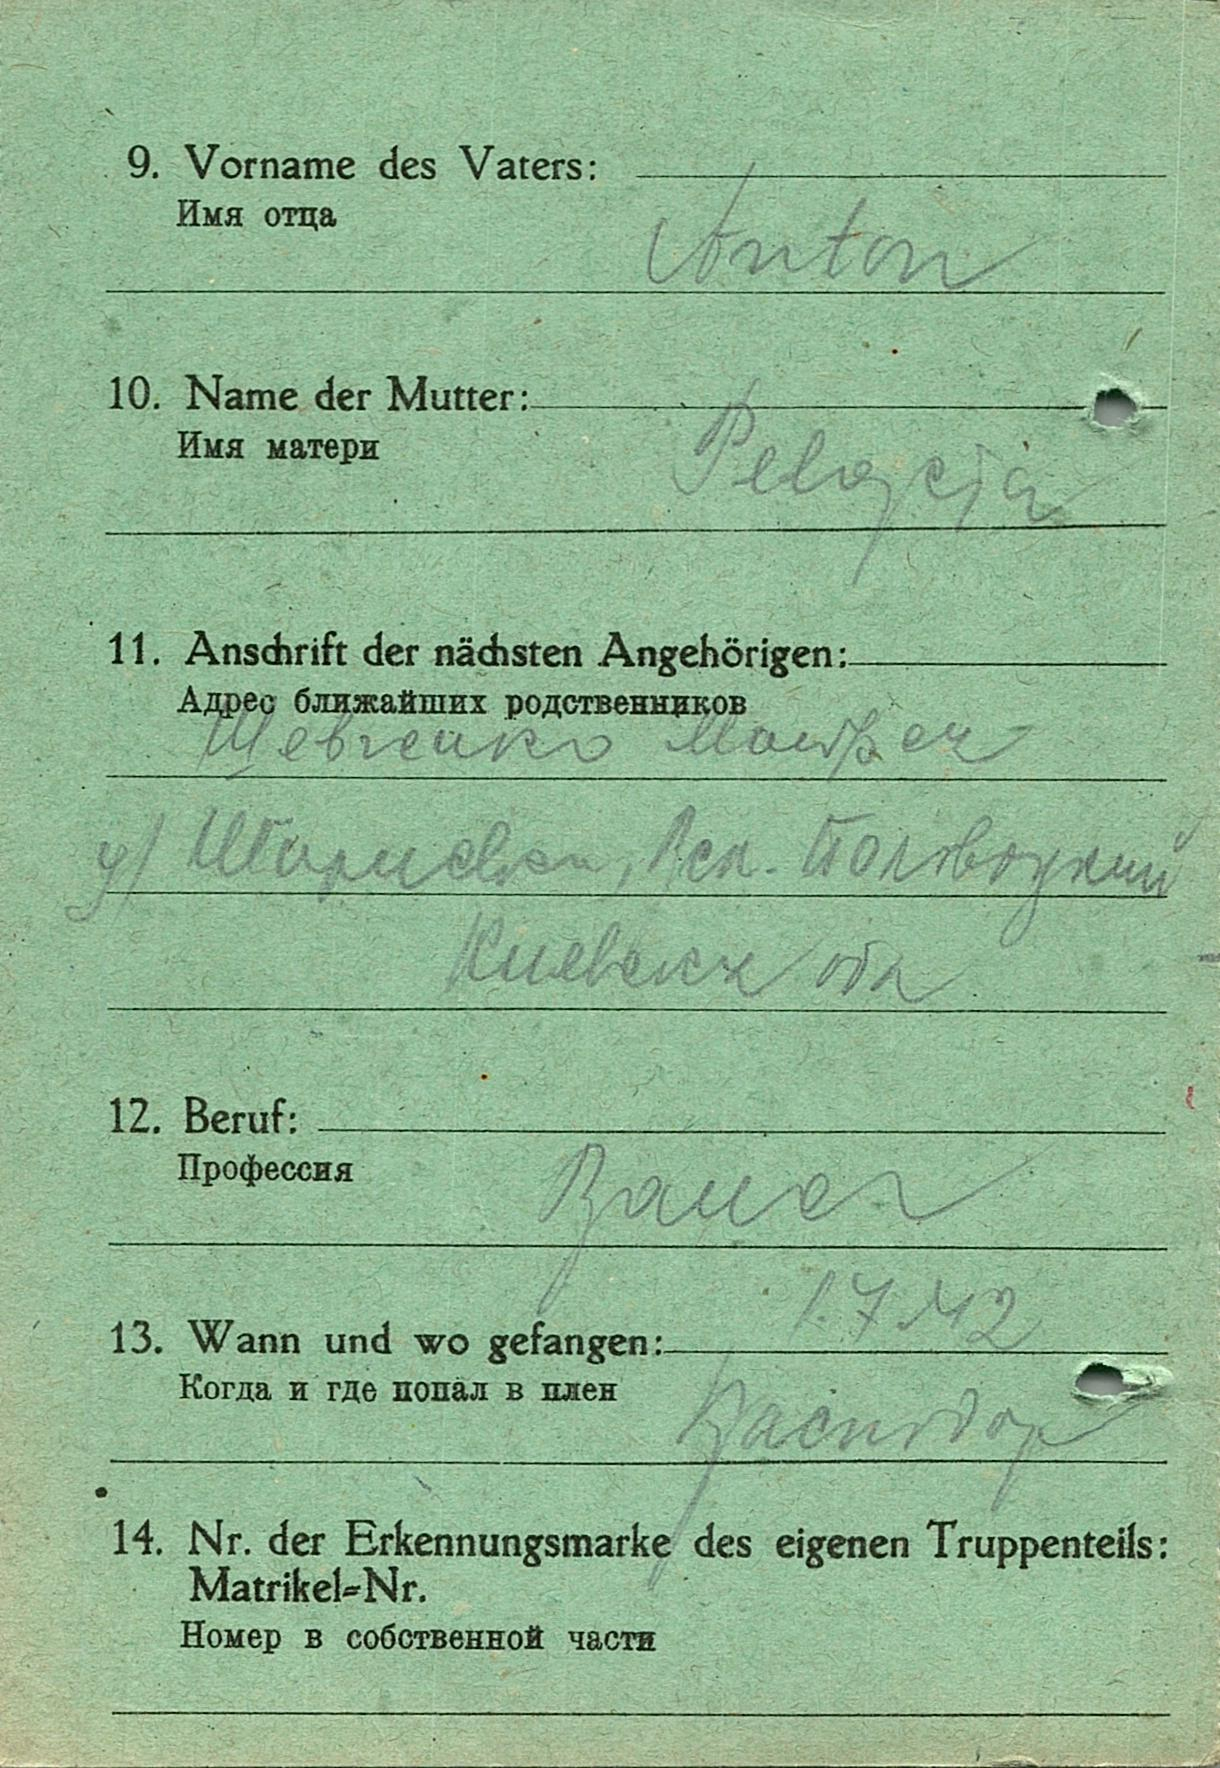 9. Vorname des Vaters:
Имя отца
Anton
10. Name der Mutter:
Имя матери
Pelageja
11. Anschrift der nächsten Angehörigen:
Адрес ближайших родственников
Шевченко
у/
Киевская обл
12. Beruf:
Профессия
Bauer
1.7.42
13. Wann und wo gefangen:
Когда и где попал в плен
14. Nr. der Erkennungsmarke des eigenen Truppenteils:
Matrikel=Nr.
Номер в собственной части